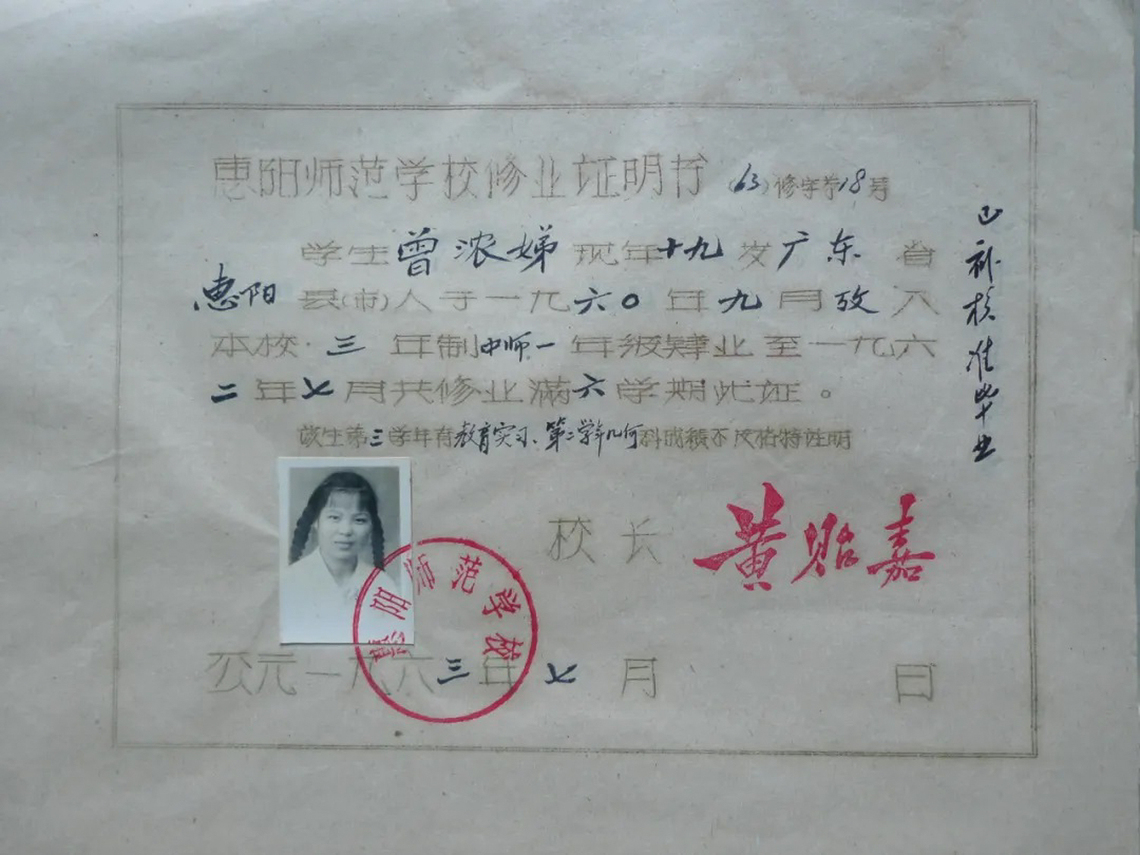 惠阳师范学校修业证明书 (63)修字第18号
学生曾浓娣现年十九岁广东省
惠阳县(市)人于一九六〇年九月考入
本校三年制中师一年级肄业至一九六
二年七月共修业满六学期此证。
该生第三学年有教育实习、第二学年几何科成绩不及格特注明
校长 黄贻嘉
公元一九六三年七月 日
惠阳师范学校
已补核准毕业